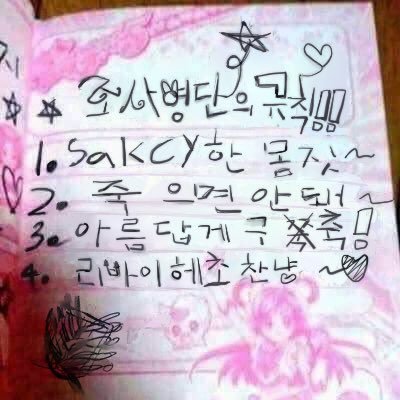 조사병단의 규칙!!!
1. Sakcy한 몸짓~
2. 죽으면 안 돼~
3. 아름답게 구축!
4. 리바이헤쵸 찬냥 ~♥